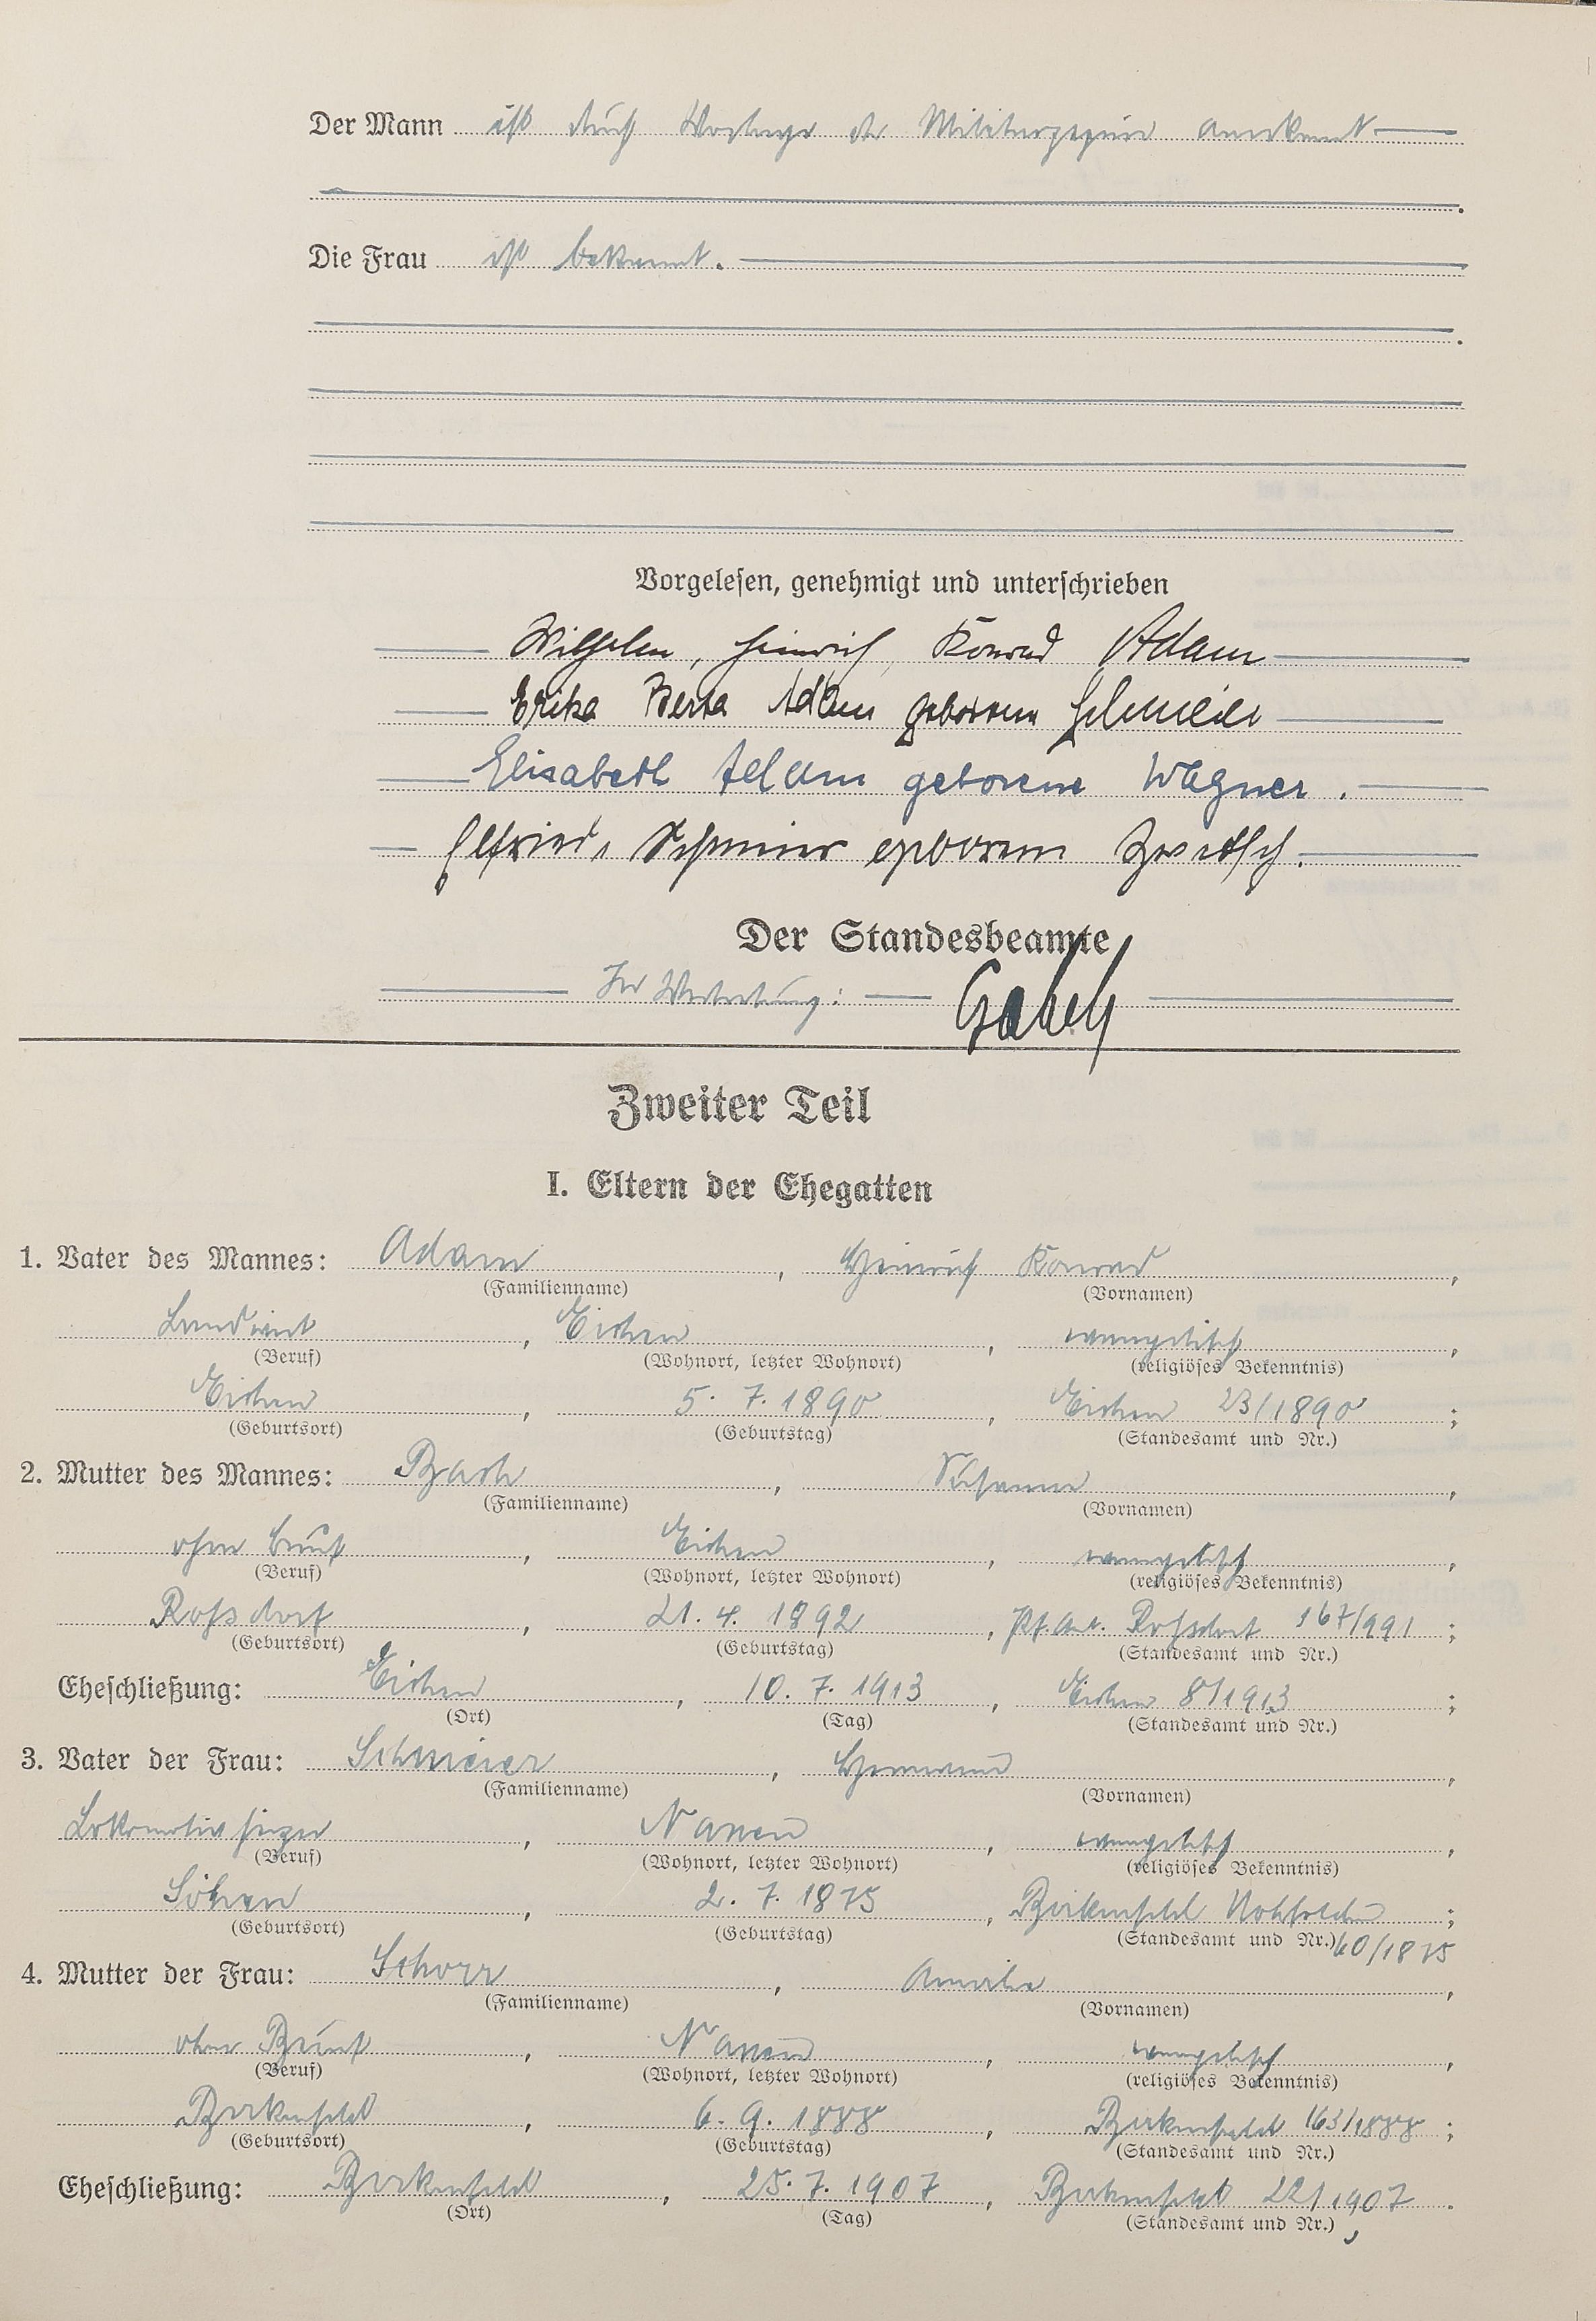 Der Mann ist durch Vorlage der Militärpapiere anerkannt
Die Frau ist bekannt.
Vorgelesen, genehmigt und unterschrieben
Wilhelm, Heinrich, Konrad Adam
Erika Berta Adam geborene Schmeier
Elisabeth Adam geborene Wagner.
Elfriede Schmeier geborene
Der Standesbeamte
In Vertretung:
Zweiter Teil
I. Eltern der Ehegatten
1. Vater des Mannes: Adam, Heinrich Konrad,
(Familienname) (Vornamen)
Landwirt, Eichen, evangelisch,
(Beruf) (Wohnort, letzter Wohnort) (religiöses Bekenntnis)
Eichen, 5. 7. 1890, Eichen 23/1890;
(Geburtsort) (Geburtstag) (Standesamt und Nr.)
2. Mutter des Mannes: Susanne,
(Familienname) (Vornamen)
ohne Beruf, Eichen, evangelisch,
(Beruf) (Wohnort, letzter Wohnort) (religiöses Bekenntnis)
Roßdorf, 21. 4. 1892, Pf. Amt. Roßdorf 167/991;
(Geburtsort) (Geburtstag) (Standesamt und Nr.)
Eheschließung: Eichen, 10. 7. 1913, Eichen 8/1913;
(Ort) (Tag) (Standesamt und Nr.)
3. Vater der Frau: Schmeier, Hermann,
(Familienname) (Vornamen)
Lokomotivheizer, , evangelisch,
(Beruf) (Wohnort, letzter Wohnort) (religiöses Bekenntnis)
Sötern, 2. 7. 1875, Birkenfeld Nohfelden;
(Geburtsort) (Geburtstag) (Standesamt und Nr.) 60/1875
4. Mutter der Frau: Schorr, Amalie,
(Familienname) (Vornamen)
ohne Beruf, , evangelisch,
(Beruf) (Wohnort, letzter Wohnort) (religiöses Bekenntnis)
Birkenfeld, 6. 9. 1888, Birkenfeld 163/1888;
(Geburtsort) (Geburtstag) (Standesamt und Nr.)
Eheschließung: Birkenfeld, 25. 7. 1907, Birkenfeld 22/1907.
(Ort) (Tag) (Standesamt und Nr.)